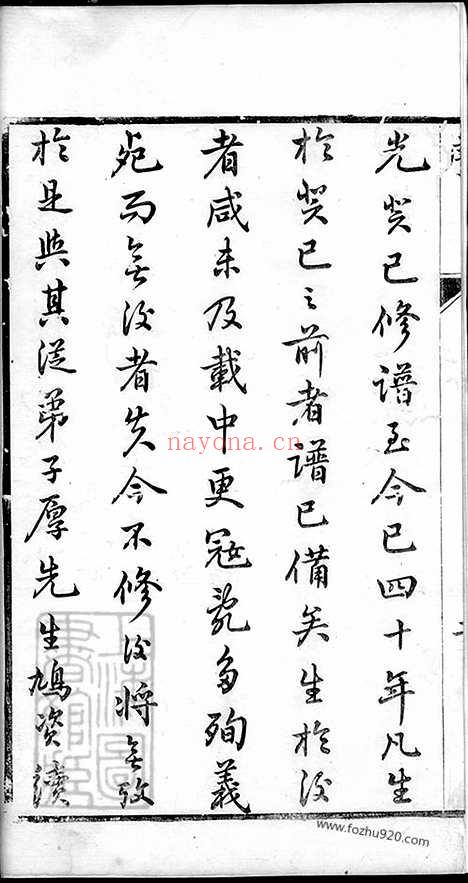 光癸巳修譜至今已四十年凡生
於癸巳之前者譜已備矣生於後
者咸未及載中更寇亂多殉義
死而無後者失今不修後將無攷
於是與其從弟子厚先生鳩資續
nayona.cn
www.fozhu920.com